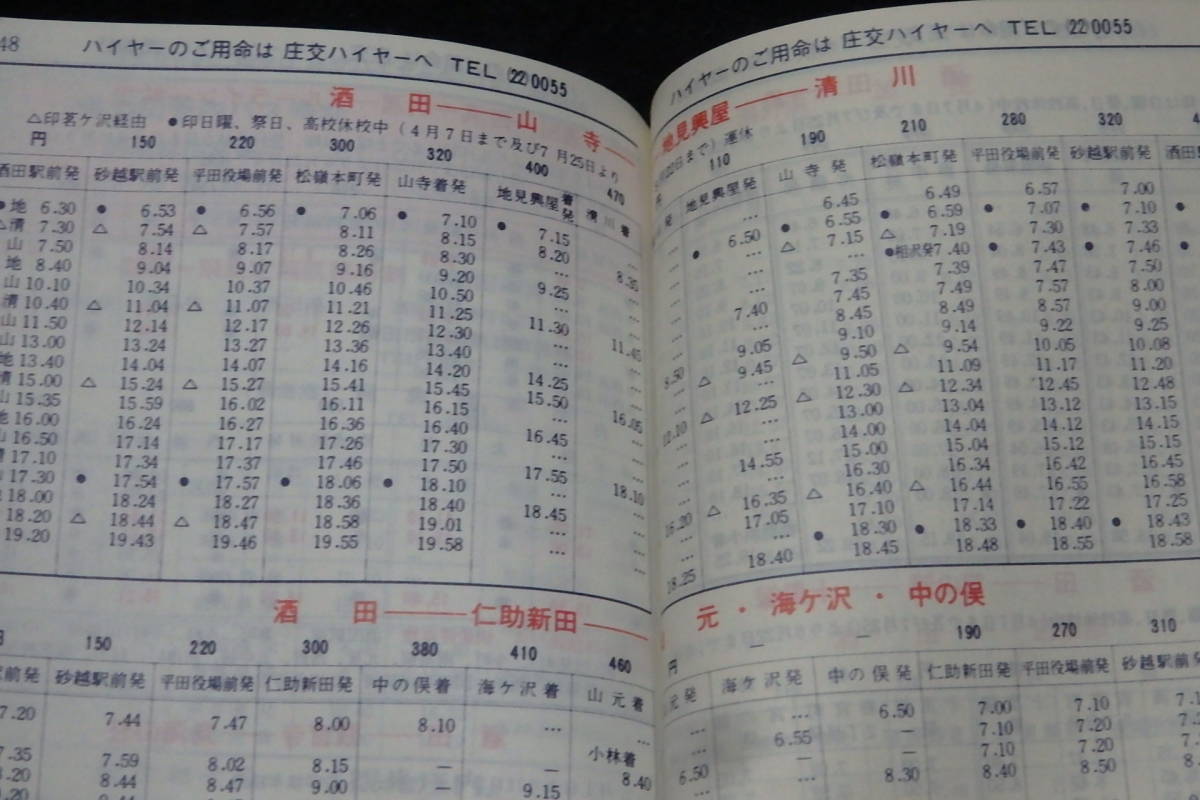 48 ハイヤーのご用命は 庄交ハイヤーへ TEL (22)0055
酒田――山寺―
△印茗ケ沢経由 ●印日曜、祭日、高校休校中(4月7日まで及び7月25日より
円 150 220 300 320 400 470
酒田駅前発 砂越駅前発 平田役場前発 松嶺本町発 山寺着発 地見興屋着発 清川着
●地 6.30 ● 6.53 ● 6.56 ● 7.06 ● 7.10 ● 7.15 …
△清 7.30 △ 7.54 △ 7.57 8.11 8.15 8.20 8.35
山 7.50 8.14 8.17 8.26 8.30 …
地 8.40 9.04 9.07 9.16 9.20 9.25 …
山 10.10 10.34 10.37 10.46 10.50 …
清 10.40 △ 11.04 △ 11.07 11.21 11.25 11.30 11.45
山 11.50 12.14 12.17 12.26 12.30 …
山 13.00 13.24 13.27 13.36 13.40 …
地 13.40 14.04 14.07 14.16 14.20 14.25 …
清 15.00 △ 15.24 △ 15.27 15.41 15.45 15.50 16.05
山 15.35 15.59 16.02 16.11 16.15 …
地 16.00 16.24 16.27 16.36 16.40 16.45 …
山 16.50 17.14 17.17 17.26 17.30 …
17.10 17.34 17.37 17.46 17.50 17.55 18.10
17.30 ● 17.54 ● 17.57 ● 18.06 ● 18.10 …
18.00 18.24 18.27 18.36 18.40 18.45 …
18.20 △ 18.44 △ 18.47 18.58 19.01 …
19.20 19.43 19.46 19.55 19.58 …
酒田――仁助新田――
円 150 220 300 380 410 460
駅前発 砂越駅前発 平田役場前発 仁助新田発 中の俣着 海ケ沢着 山元着
7.20 7.44 7.47 8.00 8.10 … …
小林着
7.35 7.59 8.02 8.15 — — 8.40
8.20 8.44 8.47 9.00 — 9.15
ハイヤーのご用命は 庄交ハイヤーへ TEL (22)0055
地見興屋――清川
22日まで)運休
110 190 210 280 320
発 地見興屋発 山寺発 松嶺本町発 平田役場前発 砂越駅前発 酒田
… … 6.45 6.49 6.57 7.00
… ● 6.50 ● 6.55 ● 6.59 ● 7.07 ● 7.10 ●
… … △ 7.15 △ 7.19 7.30 7.33
… … … ●相沢発7.40 ● 7.43 ● 7.46 ●
… … 7.35 7.39 7.47 7.50
… 7.40 7.45 7.49 7.57 8.00
… … 8.45 8.49 8.57 9.00
… 9.05 9.10 9.14 9.22 9.25
8.50 △ 9.45 △ 9.50 △ 9.54 10.05 10.08
… … 11.05 11.09 11.17 11.20
12.10 △ 12.25 △ 12.30 △ 12.34 12.45 12.48
… … 13.00 13.04 13.12 13.15
… … 14.00 14.04 14.12 14.15
… 14.55 15.00 15.04 15.12 15.15
… … 16.30 16.34 16.42 16.45
16.20 △ 16.35 △ 16.40 △ 16.44 16.55 16.58
… 17.05 17.10 17.14 17.22 17.25
… … ● 18.30 ● 18.33 ● 18.40 ● 18.43
18.25 18.40 18.45 18.48 18.55 18.58
元・海ケ沢・中の俣
円 — — 190 270 310
元発 海ケ沢発 中の俣発 仁助新田発 平田役場前発 砂越駅前発
… … 6.50 7.00 7.10
… 6.55 — 7.10 7.20
6.50 — — 7.10 7.20
… … 8.30 8.40 8.50